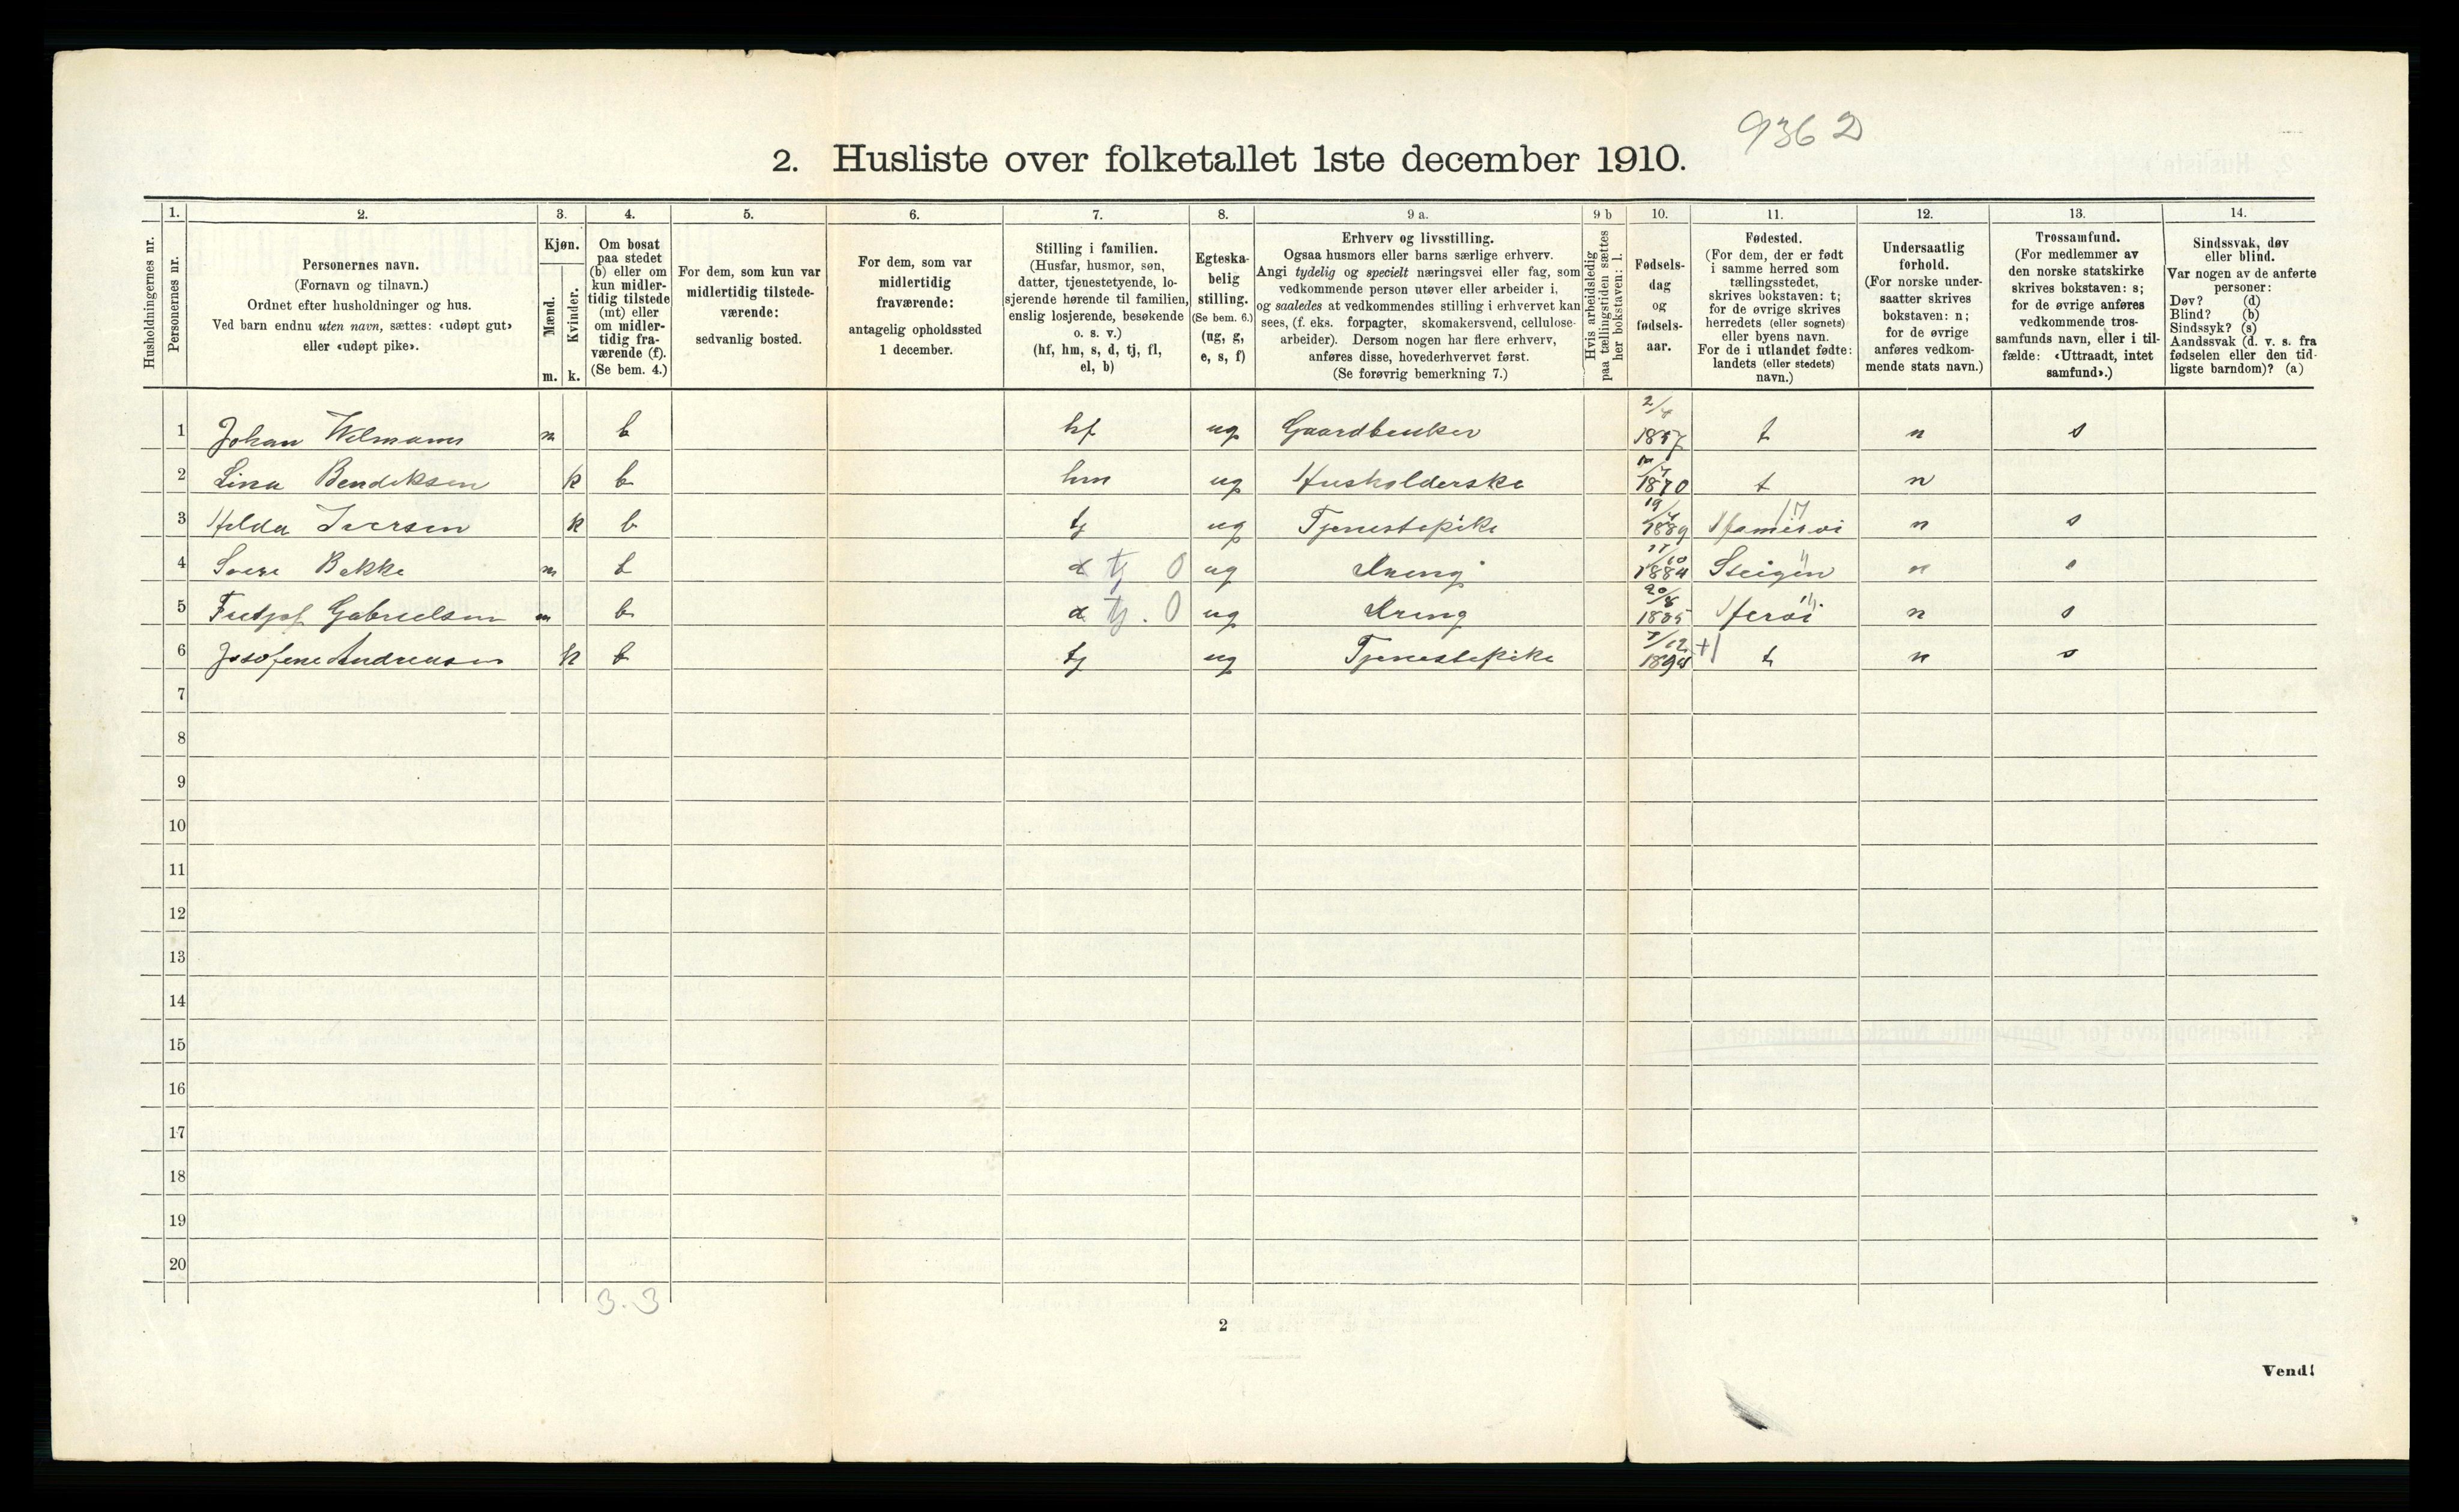 9362
2. Husliste over folketallet 1ste december 1910.
Husholdningernes nr.
1.
Personernes nr.
2.
Personernes navn.
(Fornavn og tilnavn.)
Ordnet efter husholdninger og hus.
Ved barn endnu uten navn, sættes: «udøpt gut»
eller «udøpt pike».
3.
Kjøn.
Mænd.
Kvinder.
m. k.
4.
Om bosat
paa stedet
(b) eller om
kun midler-
tidig tilstede
(mt) eller
om midler-
tidig fra-
værende (f).
(Se bem. 4.)
5.
For dem, som kun var
midlertidig tilstede-
værende:
sedvanlig bosted.
6.
For dem, som var
midlertidig
fraværende:
antagelig opholdssted
1 december.
7.
Stilling i familien.
(Husfar, husmor, søn,
datter, tjenestetyende, lo-
sjerende hørende til familien,
enslig losjerende, besøkende
o. s. v.)
(hf, hm, s, d, tj, fl,
el, b)
8.
Egteska-
belig
stilling.
(Se bem. 6.)
(ug, g,
e, s, f)
9 a.
Erhverv og livsstilling.
Ogsaa husmors eller barns særlige erhverv.
Angi tydelig og specielt næringsvei eller fag, som
vedkommende person utøver eller arbeider i,
og saaledes at vedkommendes stilling i erhvervet kan
sees, (f. eks. forpagter, skomakersvend, cellulose-
arbeider). Dersom nogen har flere erhverv,
anføres disse, hovederhvervet først.
(Se forøvrig bemerkning 7.)
9 b
Hvis arbeidsledig
paa tællingstiden sættes
her bokstaven: l.
10.
Fødsels-
dag
og
fødsels-
aar.
11.
Fødested.
(For dem, der er født
i samme herred som
tællingsstedet,
skrives bokstaven: t;
for de øvrige skrives
herredets (eller sognets)
eller byens navn.
For de i utlandet fødte:
landets (eller stedets)
navn.)
12.
Undersaatlig
forhold.
(For norske under-
saatter skrives
bokstaven: n;
for de øvrige
anføres vedkom-
mende stats navn.)
13.
Trossamfund.
(For medlemmer av
den norske statskirke
skrives bokstaven: s;
for de øvrige anføres
vedkommende tros-
samfunds navn, eller i til-
fælde: «Uttraadt, intet
samfund».)
14.
Sindssvak, døv
eller blind.
Var nogen av de anførte
personer:
Døv? (d)
Blind? (b)
Sindssyk? (s)
Aandssvak (d. v. s. fra
fødselen eller den tid-
ligste barndom)? (a)
1 Johan m b hf ug Gaardbruker 1857 t n s
2 Lina Bendiksen k b hm ug Husholderske 1870 t n
3 Hilda Iversen k b tj ug Tjenestepike 1889 n s
4 Bakke m b tj 0 ug Dreng 1884 Steigen n s
5 Gabrielsen m b tj. 0 ug Dreng Herøi n s
6 Josefine Andreasen k b tj ug Tjenestepike 7/12 t n s
7
8
9
10
11
12
13
14
15
16
17
18
19
20
3.3
2
Vend!